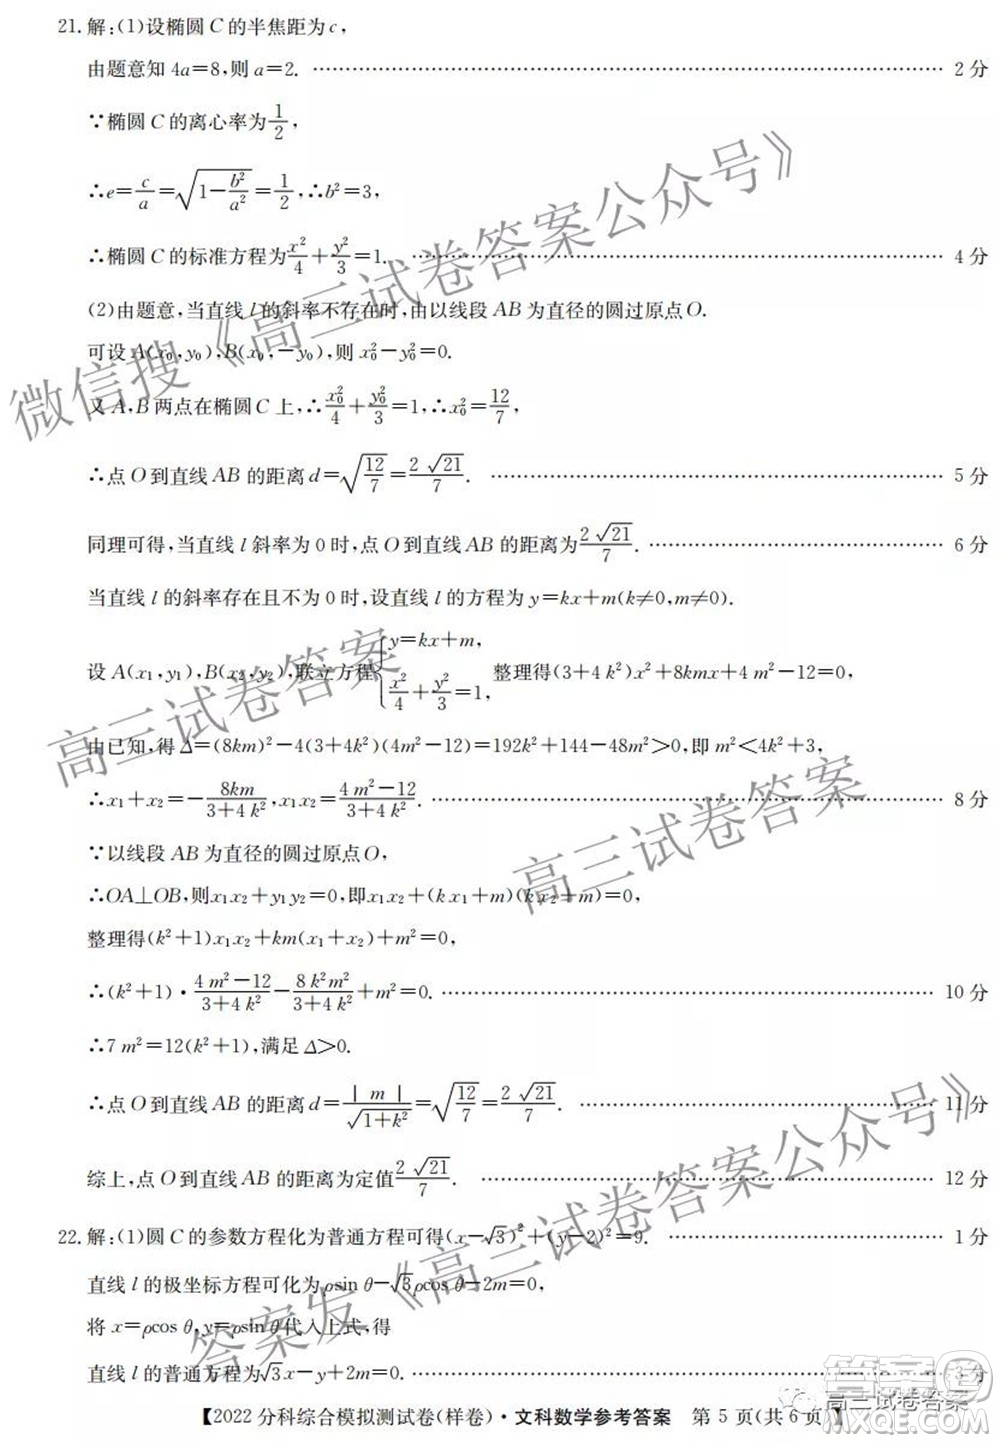 21. 解:(1)设椭圆 C 的半焦距为 c,
由题意知 4a=8,则 a=2. …… 2 分
∵椭圆 C 的离心率为 1/2,
∴e=c/a=√(1-b²/a²)=1/2,∴b²=3,
∴椭圆 C 的标准方程为 x²/4+y²/3=1. …… 4 分
(2)由题意,当直线 l 的斜率不存在时,由以线段 AB 为直径的圆过原点 O.
可设 A(x₀,y₀),B(x₀,-y₀),则 x₀²-y₀²=0.
又 A,B 两点在椭圆 C 上,∴x₀²/4+y₀²/3=1,∴x₀²=12/7,
∴点 O 到直线 AB 的距离 d=√(12/7)=2√21/7. …… 5 分
同理可得,当直线 l 斜率为 0 时,点 O 到直线 AB 的距离为 2√21/7. …… 6 分
当直线 l 的斜率存在且不为 0 时,设直线 l 的方程为 y=kx+m(k≠0,m≠0).
设 A(x₁,y₁),B(x₂,y₂),联立方程{y=kx+m, x²/4+y²/3=1, 整理得(3+4k²)x²+8kmx+4m²-12=0,
由已知,得 Δ=(8km)²-4(3+4k²)(4m²-12)=192k²+144-48m²>0,即 m²<4k²+3,
∴x₁+x₂=-8km/(3+4k²),x₁x₂=(4m²-12)/(3+4k²). …… 8 分
∵以线段 AB 为直径的圆过原点 O,
∴OA⊥OB,则 x₁x₂+y₁y₂=0,即 x₁x₂+(kx₁+m)(kx₂+m)=0,
整理得(k²+1)x₁x₂+km(x₁+x₂)+m²=0,
∴(k²+1)·(4m²-12)/(3+4k²)-8k²m²/(3+4k²)+m²=0. …… 10 分
∴7m²=12(k²+1),满足 Δ>0.
∴点 O 到直线 AB 的距离 d=|m|/√(1+k²)=√(12/7)=2√21/7. …… 11 分
综上,点 O 到直线 AB 的距离为定值 2√21/7. …… 12 分
22. 解:(1)圆 C 的参数方程化为普通方程可得(x-√3)²+(y-2)²=9. …… 1 分
直线 l 的极坐标方程可化为 ρsin θ-√3ρcos θ-2m=0,
将 x=ρcos θ,y=ρsin θ 代入上式,得
直线 l 的普通方程为√3x-y+2m=0. …… 3 分
【2022 分科综合模拟测试卷(样卷)·文科数学参考答案 第 5 页(共 6 页)】
微信搜《高三试卷答案公众号》
高三试卷答案
高三试卷答案
答案发《高三试卷答案公众号》
高三试卷答案
答案圈
MXQE.COM